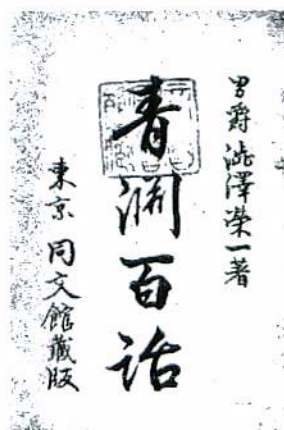 男爵澁澤榮一著
青淵百話
東京 同文館藏版